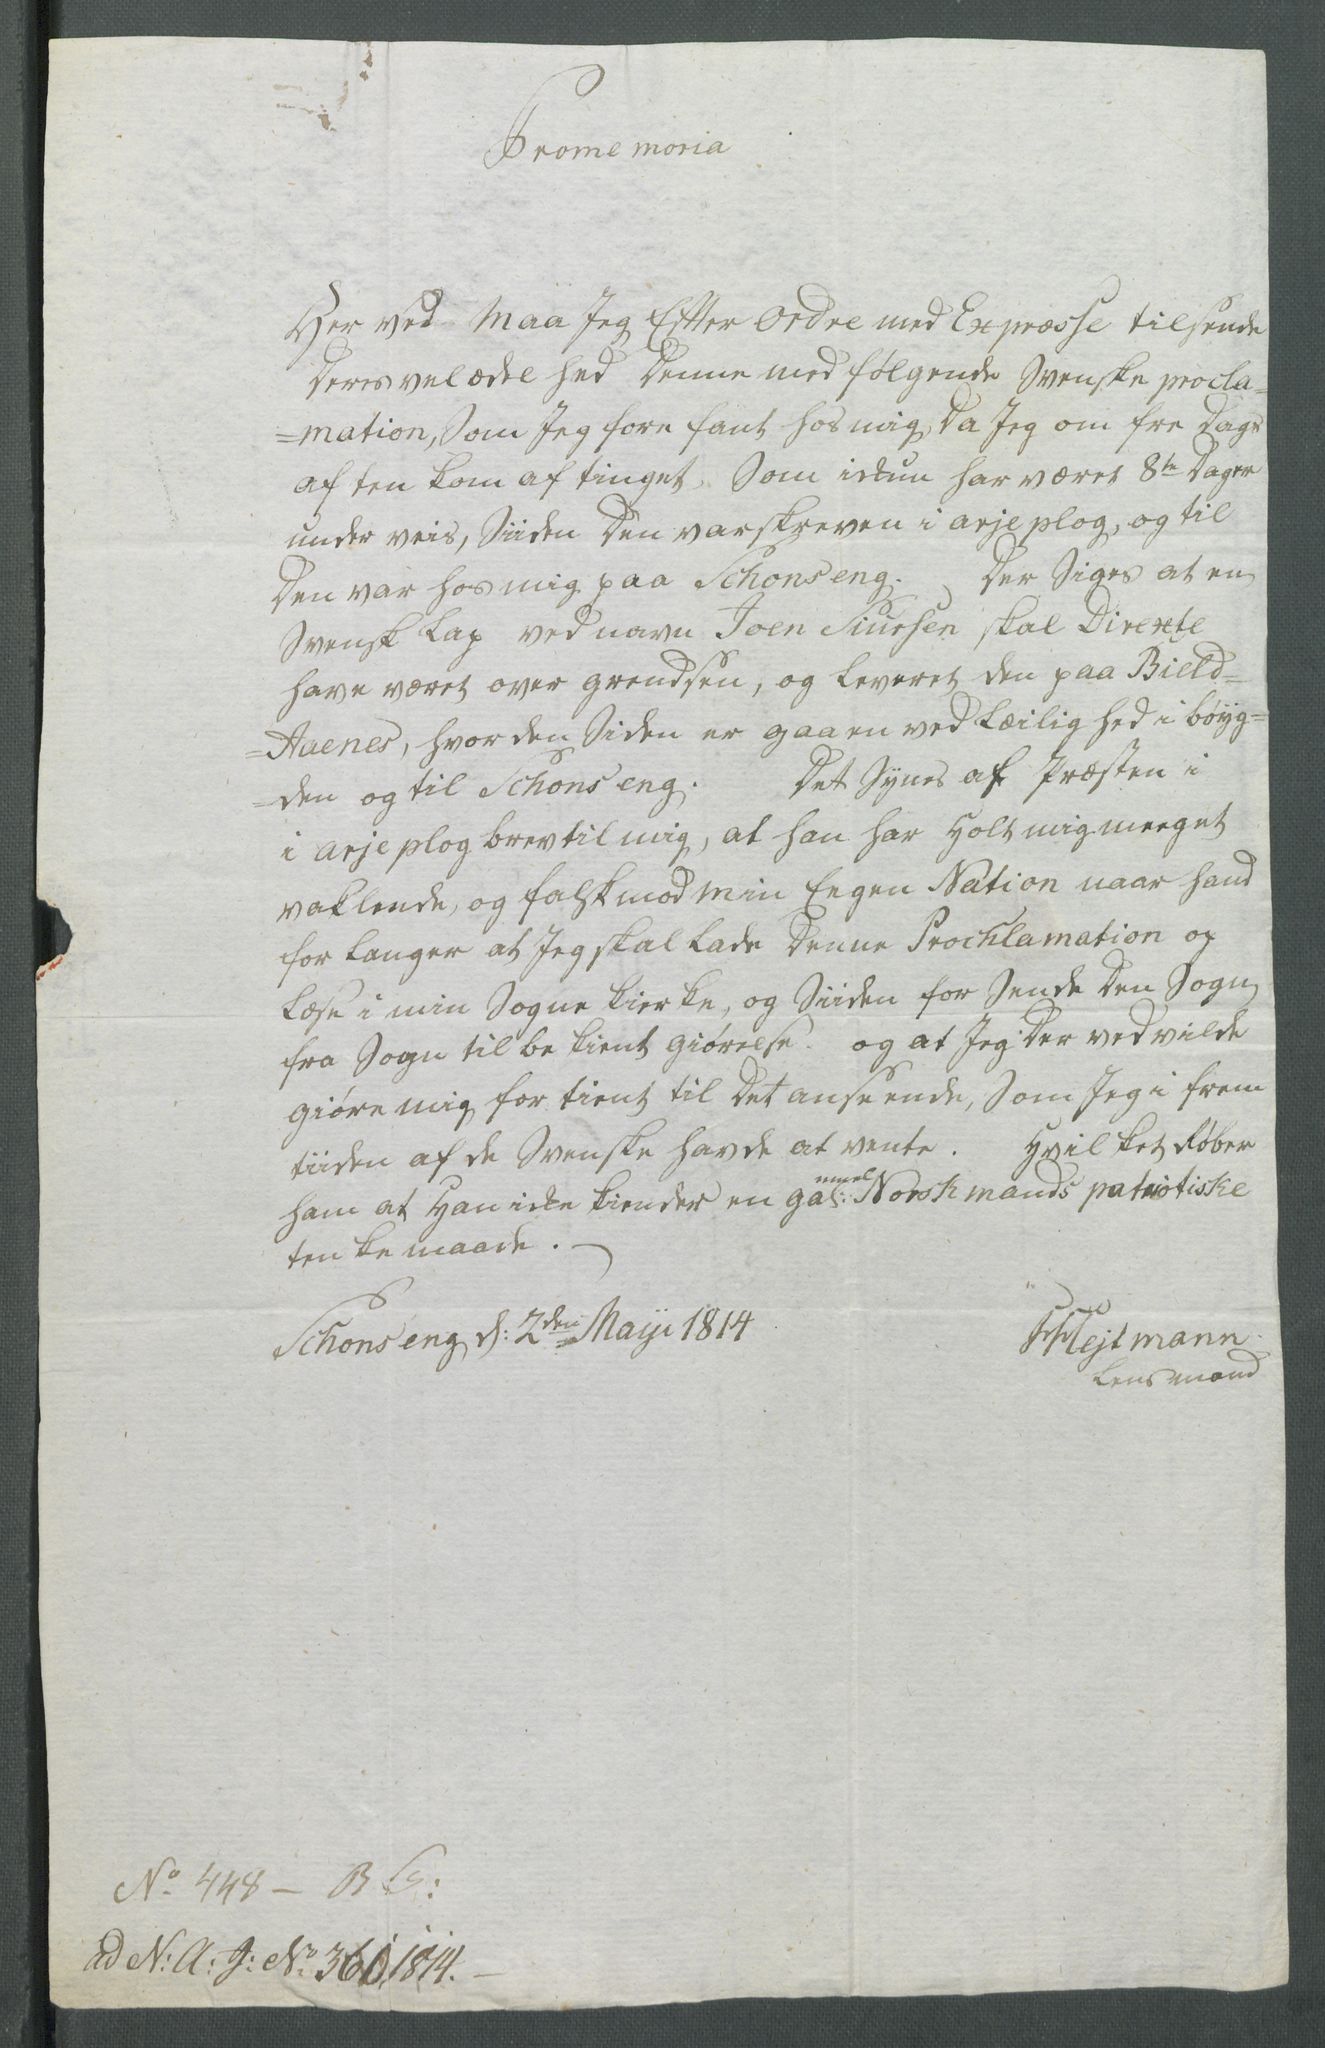 Promemoria
Her ved Maa Jeg Efter Ordre med Expræsse tilsende
Deres velædel hed Denne med følgende Svenske procla=
=mation, Som Jeg fore fant hos mig, Da Jeg om fre Dags
af ten kom af tinget, Som ickun har været 8te Dager
under veis, Siiden Den var skreven i arjeplog, og til
Den var hos mig paa Schonseng. Der Siges at en
Svensk Lap ved navn Joen Siursen skal Direxte
have været over grendsen, og leveret den paa Bield=
=Aaenes, hvor den Siden er gaaen ved Læilig hed i böyg=
=den og til Schonseng. Det Synes af Præsten i
i arjeplog brev til mig, at han har Holt mig meeget
vaklende, og falsk mod min Eegen Nation naar hand
for langer at Jeg skal lade Denne Prochlamation op
læse i min Sogne kierke, og Siiden for Sende Den Sogn
fra Sogn til be kient giørelse. og at Jeg Der ved vilde
giøre mig for tient til Det anseende, Som Jeg i frem
tiiden af de Svenske havde at vente. Hvil ket Røber
ham at Han icke kiender en gal: mmel Norsk mands patriotiske
tenke maade.
Schonseng d: 2den Maji 1814
Hejtmann
Lensmand
No 448 — B
ad N: A: J: No 360 1814. —